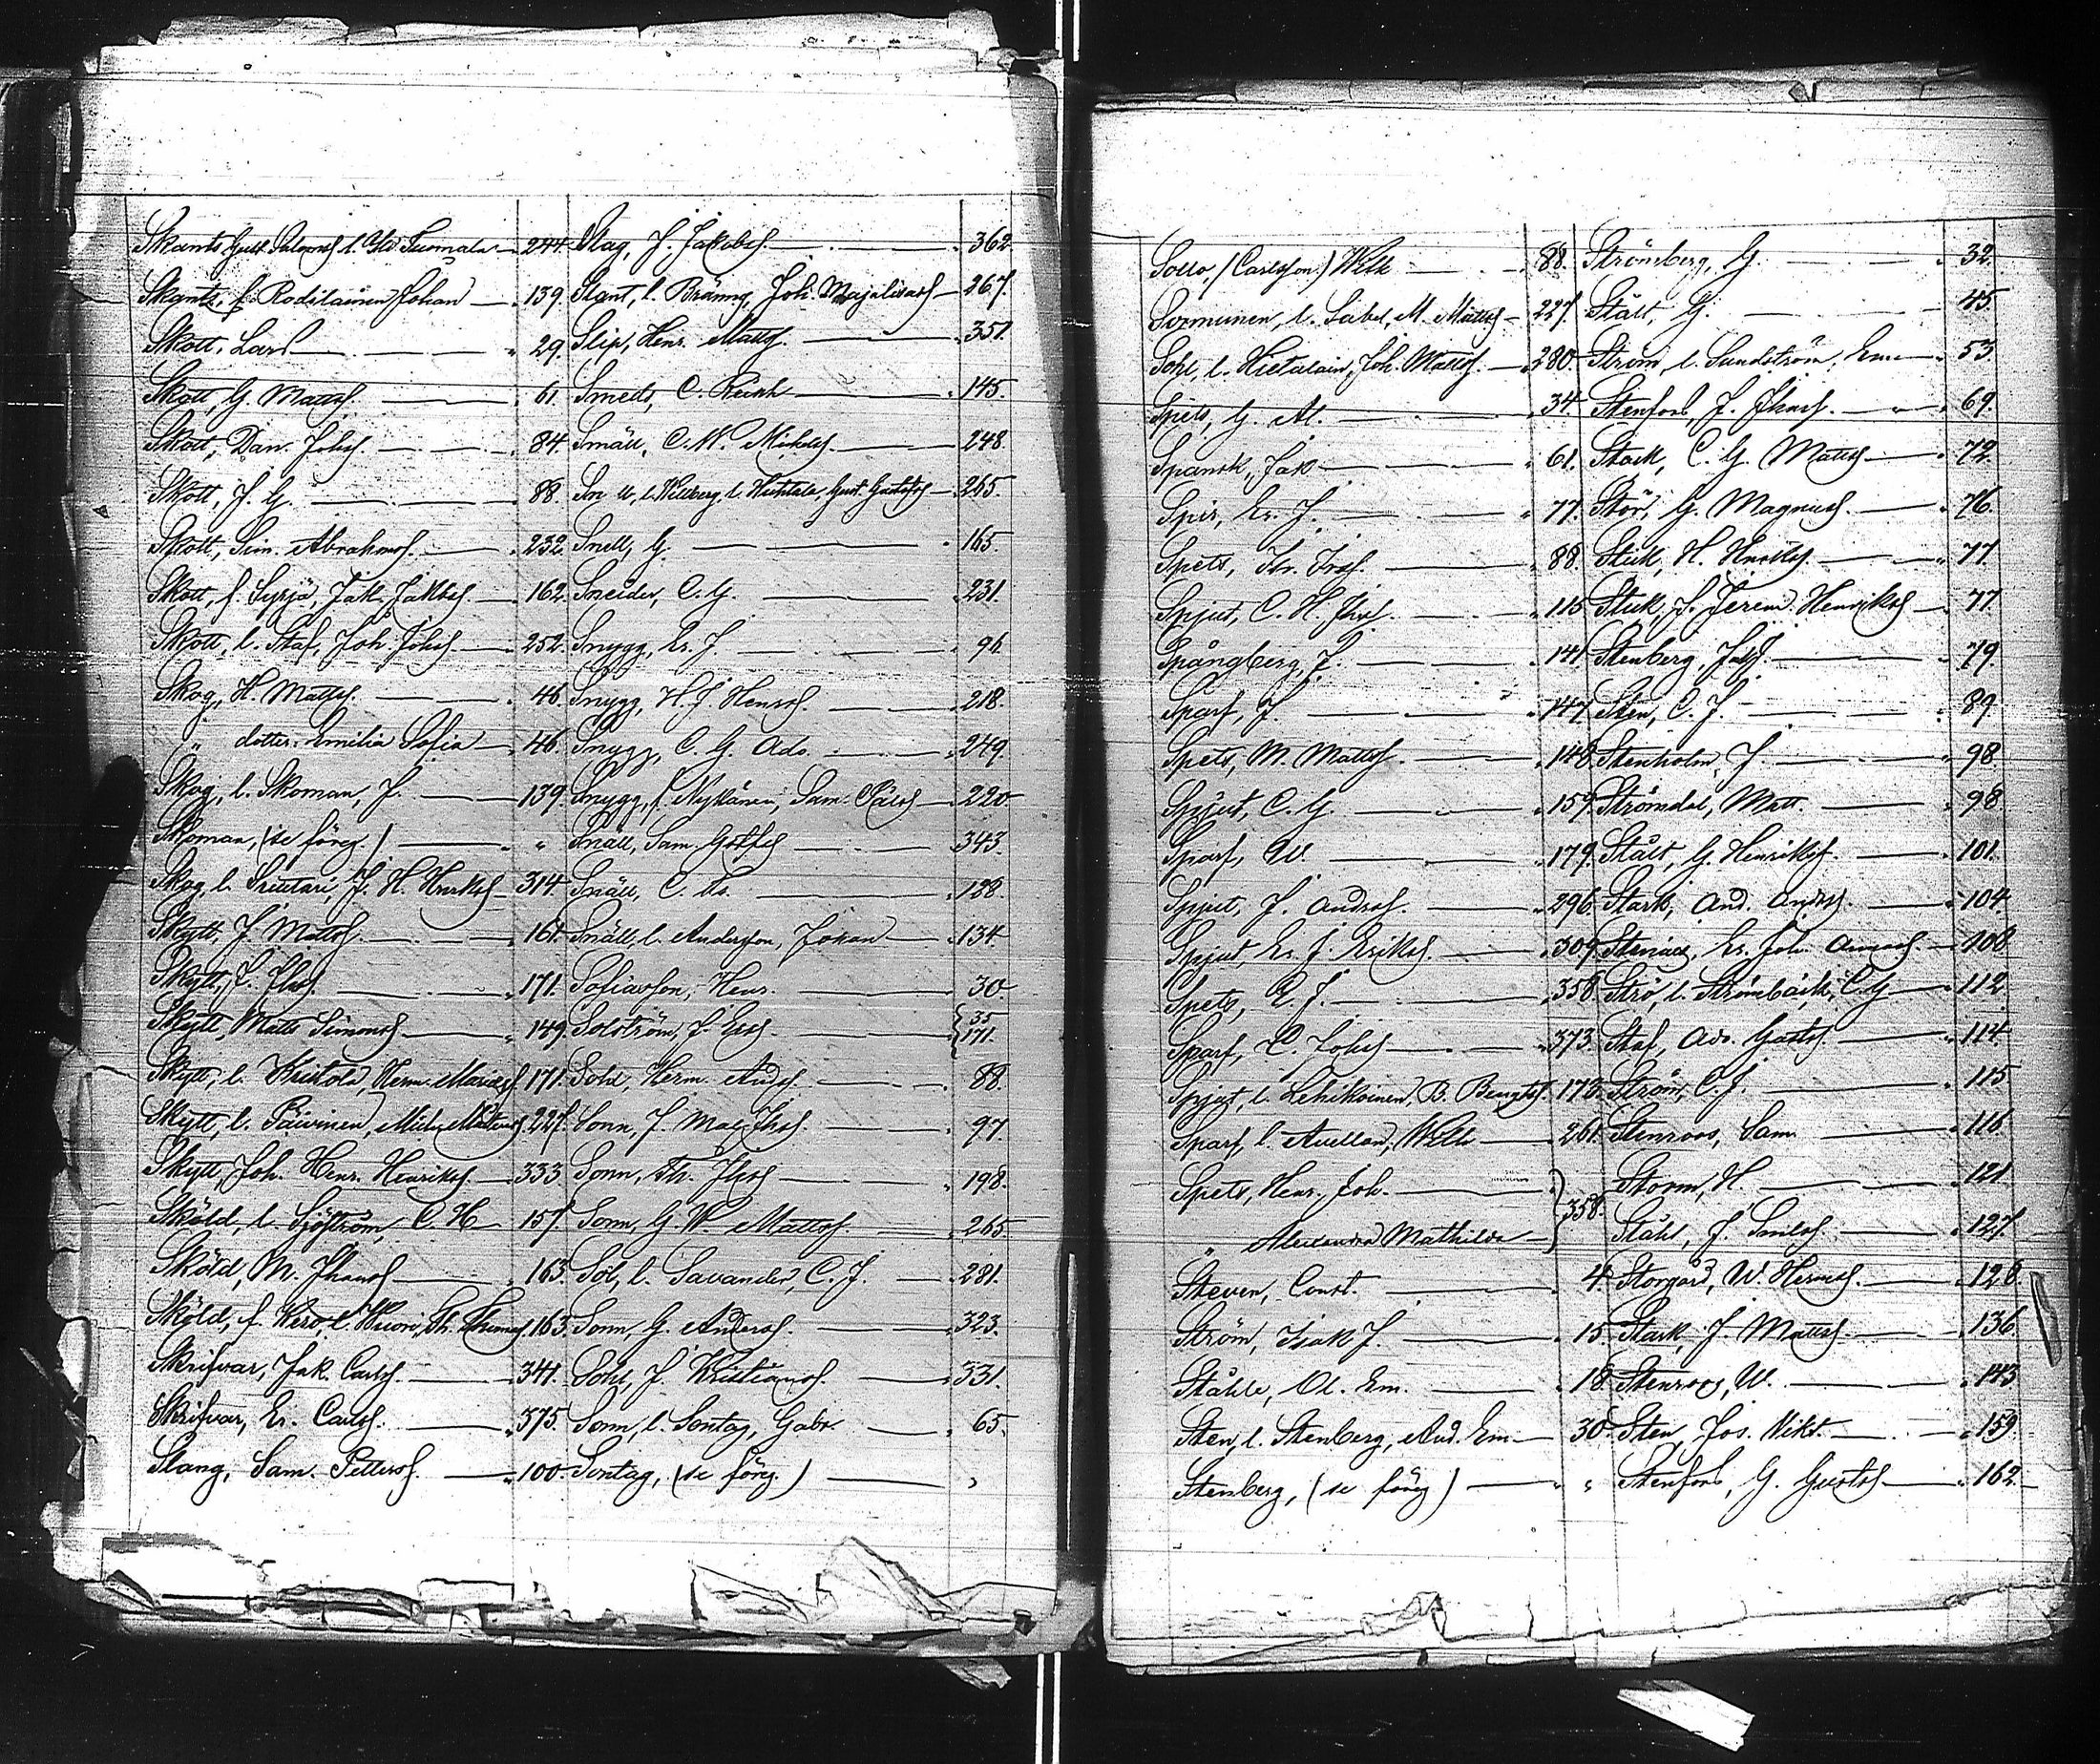 Skants, Gust. Salomons. l. Yld Suomala 244.
Skantz, f. Rodilainen Johan 139.
Skott, Lars 29.
Skott, G. Matts. 61.
Skott, Dan. Johs. 84.
Skott, J. G. 88.
Skott, Sim. Abrahams. 232.
Skott, f. Syrjä, Jak. Jakobs. 162.
Skott, l. Staf, Joh. Johs. 252.
Skog, H. Matts. 46.
" dotter Emilia Sofia 46.
Skog, l. Skoman, J. 139.
Skoman, (se föreg.) "
Skog, l. J. H. Henriks. 314
Skytt, J. Matts. 161.
Skytt, J. Jhs. 171.
Skytt, Matts Simons. 149.
Skytt, l. Kristola, Herm. Mariæs. 171.
Skytt, l. Päivinen, Mich. 227.
Skytt, Joh. Henr. Henriks. 333
Sköld, l. Sjöström, C. H. 157
Sköld, M. Jhans. 163.
Sköld, f. Kero, l. Wuori, Th. Thomas. 163.
Skrifvar, Jak. Carls. 341.
Skrifvar, Er. Carls. 375.
Slang, Sam. Petters. 100.
Slag, J. Jakobs. 362
Slant, l. Bränng, Joh. Majalisas. 267.
Slip, Henr. Matts. 351.
Smeds, C. Reinh. 145.
Smäll, C. W. Michels. 248.
Sn ll, l. Willberg, l. Huhtala, Gust. Gustafs. 265.
Snell, G. 165.
Sneider, C. G. 231.
Snygg, Er. J. 96.
Snygg, H. J. Henrs. 218.
Snygg, C. G. Ads. 249.
Snygg, f. Nykänen, Sam. Påls. 220
Snäll, Sam. Gottfs. 343.
Snäll, C. 128.
Snäll, l. Andersson, Johan 134
Sofiasson, Henr. 30.
Solström, J. Ers. 35 171.
Sohl, Herm. Ands. 88.
Sonn, J. Mag. Jhs. 97.
Sonn, Th. Jhs. 198.
Sonn, G. W. Matts. 265
Sol, l. Savander, C. J. 281.
Sonn, G. Anders. 323.
Sohl, J. Kristians. 331.
Sonn, l. Sontag, Gabr. 65.
Sontag, (se föreg.) "
Sollo, (Carlsson) Wilh. 88.
Sormunen, l. Sabel, M. Matts. 227.
Sohl, l. Hietalain, Joh. Matts. 280.
Spets, G. Al. 34
Spansk, Jak. 61.
Spir, Er. J. 77.
Spets, 88.
Spjut, C. H. 115
Spångberg, J. 141
Sparf, J. 147
Spets, M. Matts. 148
Spjut, C. G. 159.
Sparf, W. 179.
Spjut, J. Anders. 296.
Spjut, Er. J. Eriks. 309
Spets, E. J. 358
Sparf, C. Johs. 373.
Spjut, l. Lehikoinen, B. Bengts. 173.
Sparf, l. Avellan, Wilh. 261.
Spets, Henr. Joh.
" Alexandra Mathilda 358.
Steven, Const. 4.
Ström, Isak J. 15.
Ståhle, Ol. Em. 18.
Sten, l. Stenberg, And. Em. 30
Stenberg, (se föreg) "
Strömberg, G. 32.
Stålt, G. 45
Ström, l. Sundström, Em. 53
Stenfors, J. Jhans. 69.
Stark, C. G. Matts. 72
Stör, G. Magnus. 76.
Stuk, H. Henriks. 77.
Stuk, J. Jerem. Henriks. 77.
Stenberg, 79.
Sten, C. J. 89.
Stenholm, J. 98.
Strömdal, Matt. 98
Stålt, G. Henriks. 101.
Stark, And. Anders. 104
Er. Joh. 108.
Strö, l. Strömbäck, C. G. 112.
Staf, Ad. Gustfs. 114
Ström, C. J. 115
Stenroos, Sam. 116
Storm, H. 121
Ståhl, J. Emils. 127.
Storgård, W. Herms. 128
Stark, J. Matts. 136.
Stenroos, W. 143
Sten, Jos. Vikt. 159.
Stenfors, G. Gustfs. 162.